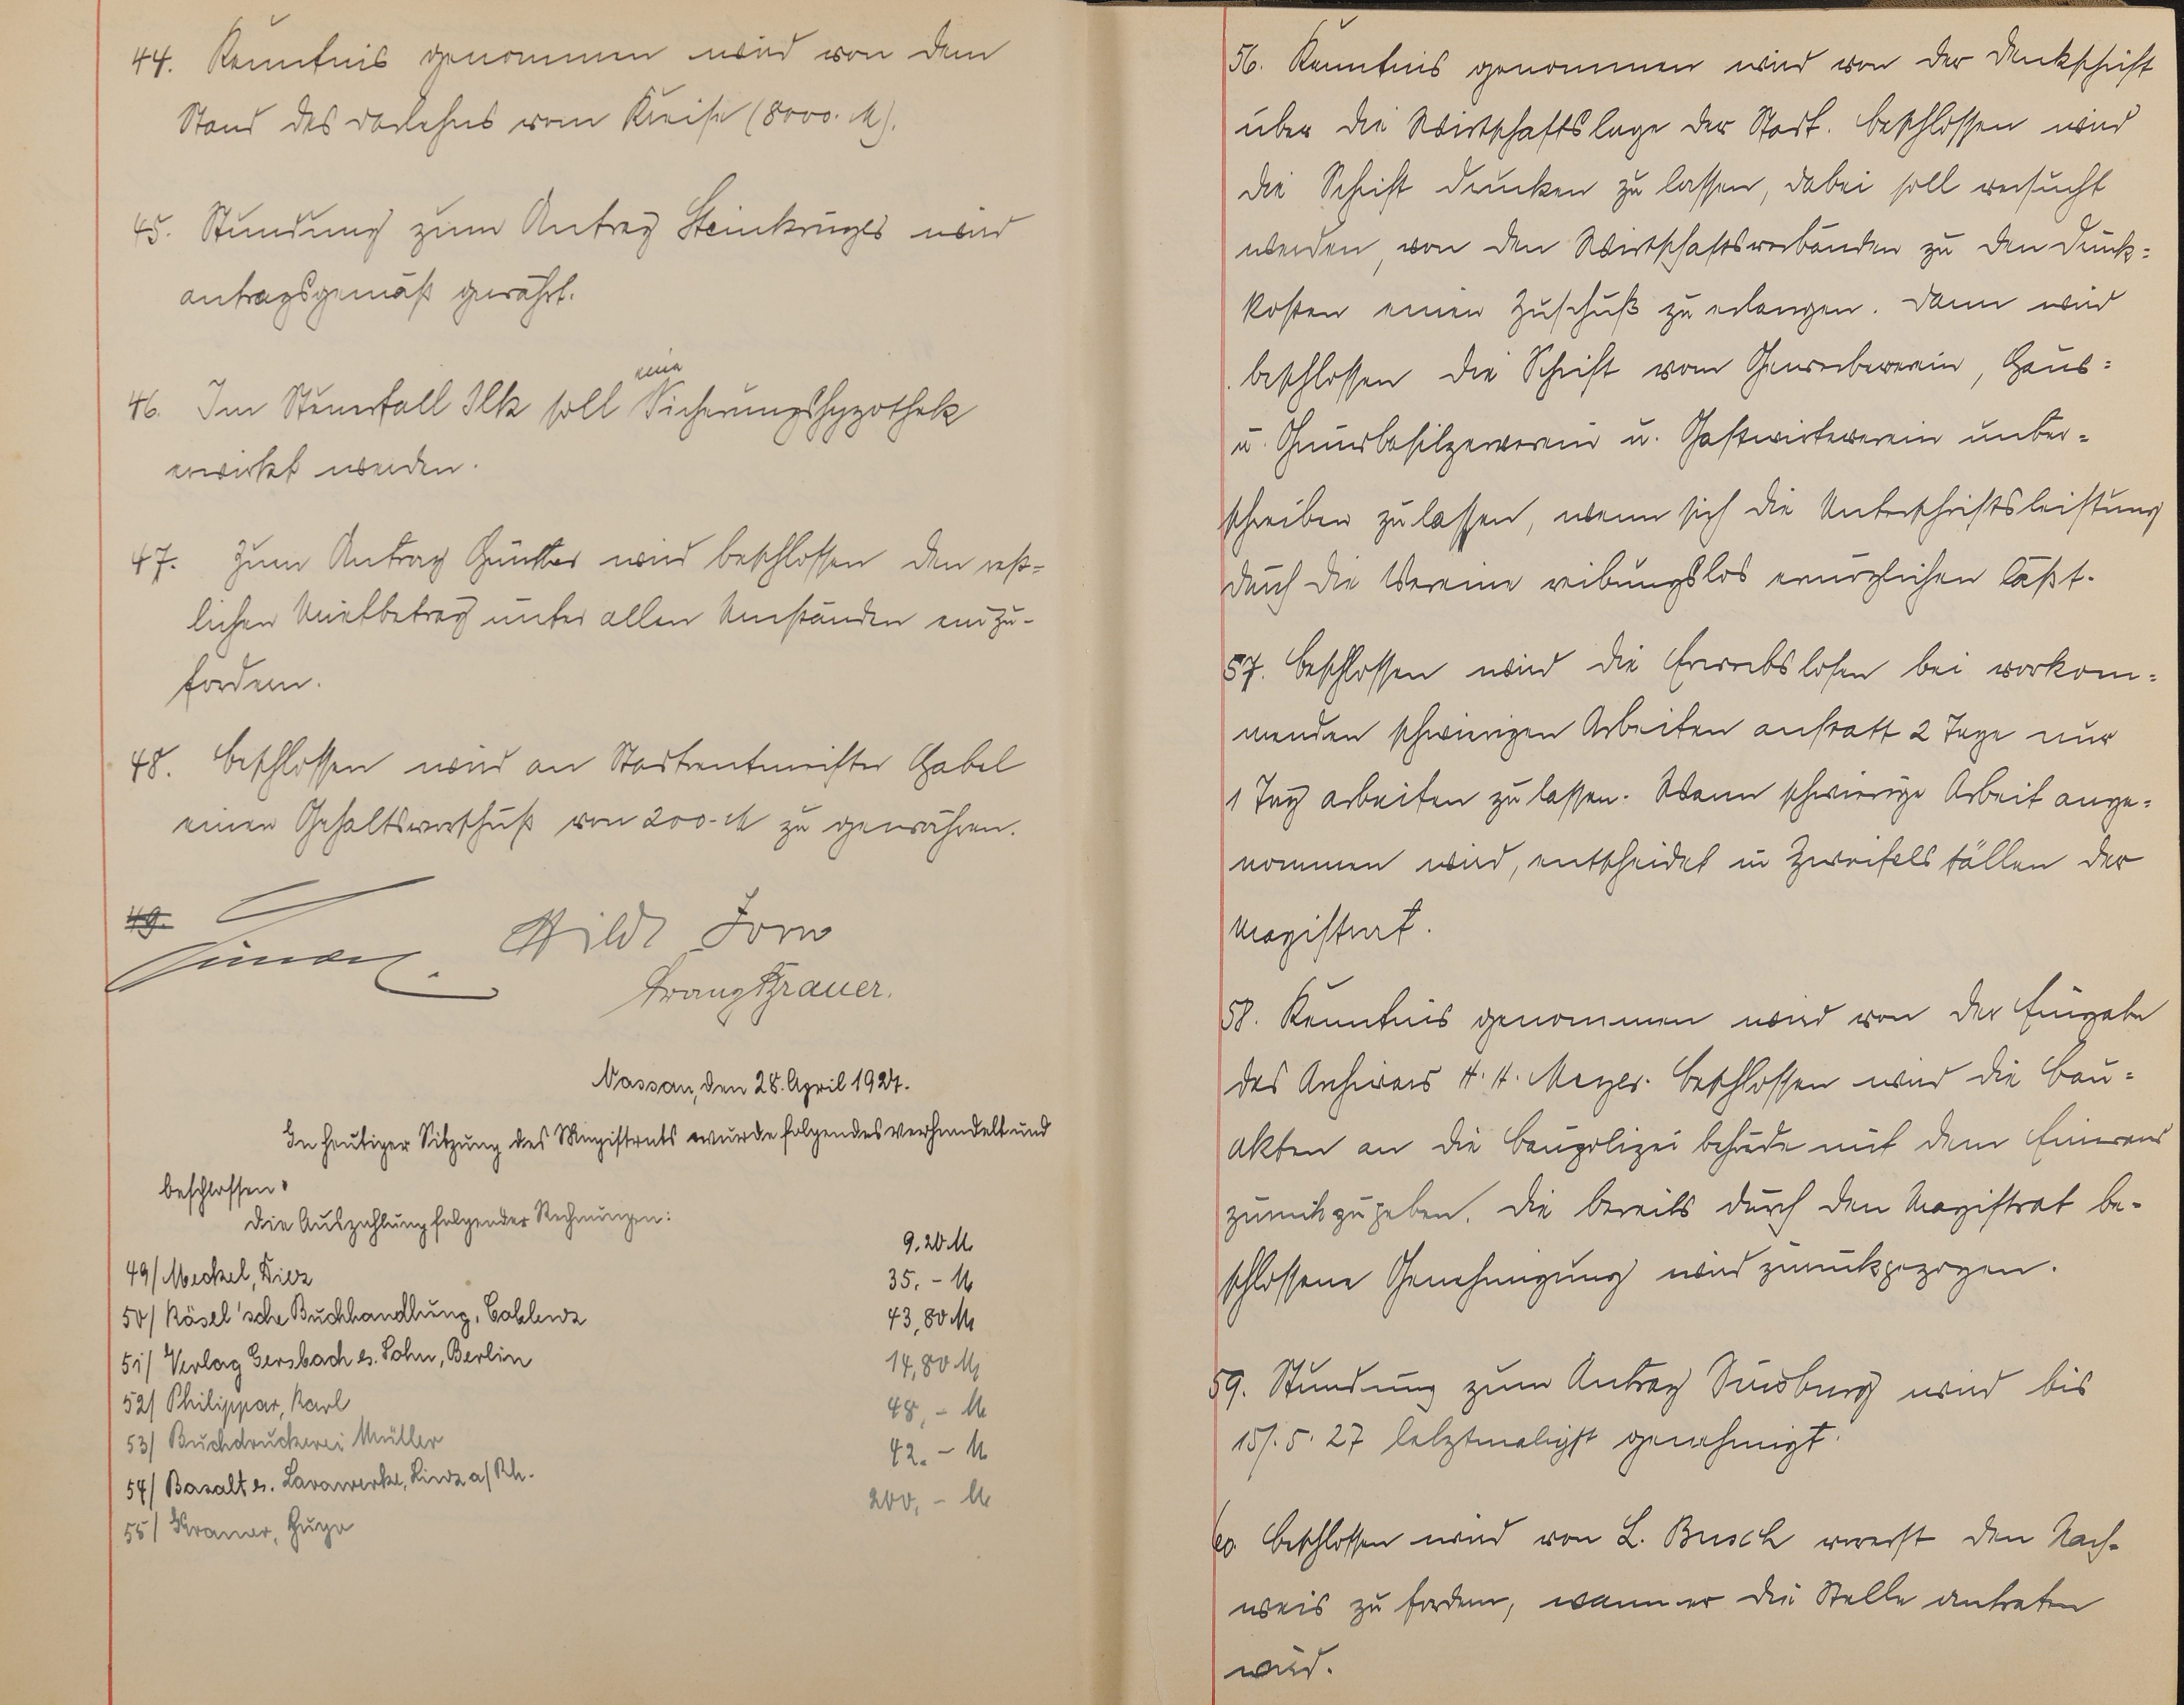 44. Kenntnis genommen wird von dem
Stand des Darlehns vom Kreise (8000. M).
45. Stundung zum Antrag Steinkrügls wird
antragsgemäß gewährt.
eine
46. Im Steuerfall Ilk soll Sicherungshypothek
erwirkt werden.
47. Zum Antrag Günther wird beschlossen den rest-
lichen Mietbetrag unter allen Umständen einzu-
fordern.
48. Beschlossen wird an Stadtrentmeister Gabel
einen Gehaltsvorschuß von 200.- M zu gewähren.
49.
Hild Zorn
Franz Brauer.
Nassau, den 28. April 1927.
In heutiger Sitzung des Magistrats wurde folgendes verhandelt und
beschlossen.
Die Auszahlung folgender Rechnungen:
49/ Meckel, Diez 9.20 M
50/ Rösel'sche Buchhandlung, Coblenz 35.- M
51/ Verlag Gersbach u. Sohn, Berlin 43,80 M
52/ Philippar, Karl 14,80 M
53/ Buchdruckerei Müller 48,- M
54/ Basalt u. Lavawerke, Linz a/Rh. 42.- M
55/ Kramer, Hugo 200,- M
56. Kenntnis genommen wird von der Denkschrift
über die Wirtschaftslage der Stadt. Beschlossen wird
die Schrift drucken zu lassen, dabei soll versucht
werden, von den Wirtschaftsverbänden zu den Druck=
kosten einen Zuschuß zu erlangen. Dann wird
beschlossen die Schrift vom Gewerbeverein, Haus=
u. Grundbesitzerverein u. Gastwirteverein unter=
schreiben zu lassen, wenn sich die Unterschriftsleistung
durch die Vereine reibungslos ermöglichen läßt.
57. Beschlossen wird die Erwerbslosen bei vorkom=
menden schwierigen Arbeiten anstatt 2 Tage nur
1 Tag arbeiten zu lassen. Wann schwierige Arbeit ange=
nommen wird, entscheidet in Zweifelsfällen der
Magistrat.
58. Kenntnis genommen wird von der Eingabe
des Archivars H. H. Meyer. Beschlossen wird die Bau=
akten an die Baupolizei behörde mit dem Einwand
zurückzugeben. Die bereits durch den Magistrat be-
schlossene Genehmigung wird zurückgezogen.
59. Stundung zum Antrag wird bis
15/.5.27 letztmaligst genehmigt.
60 Beschlossen wird von L. Busch vorerst den Nach-
weis zu fordern, wann er die Stelle antreten
wird.